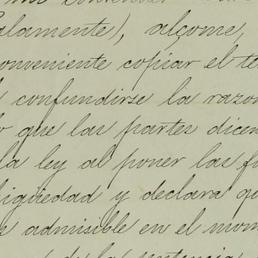 alamente), alçome,
conveniente copiar el te
confundirse la razon
que las partes dicen
la ley al poner las f
igüedad y declara qu
admisible en el mom